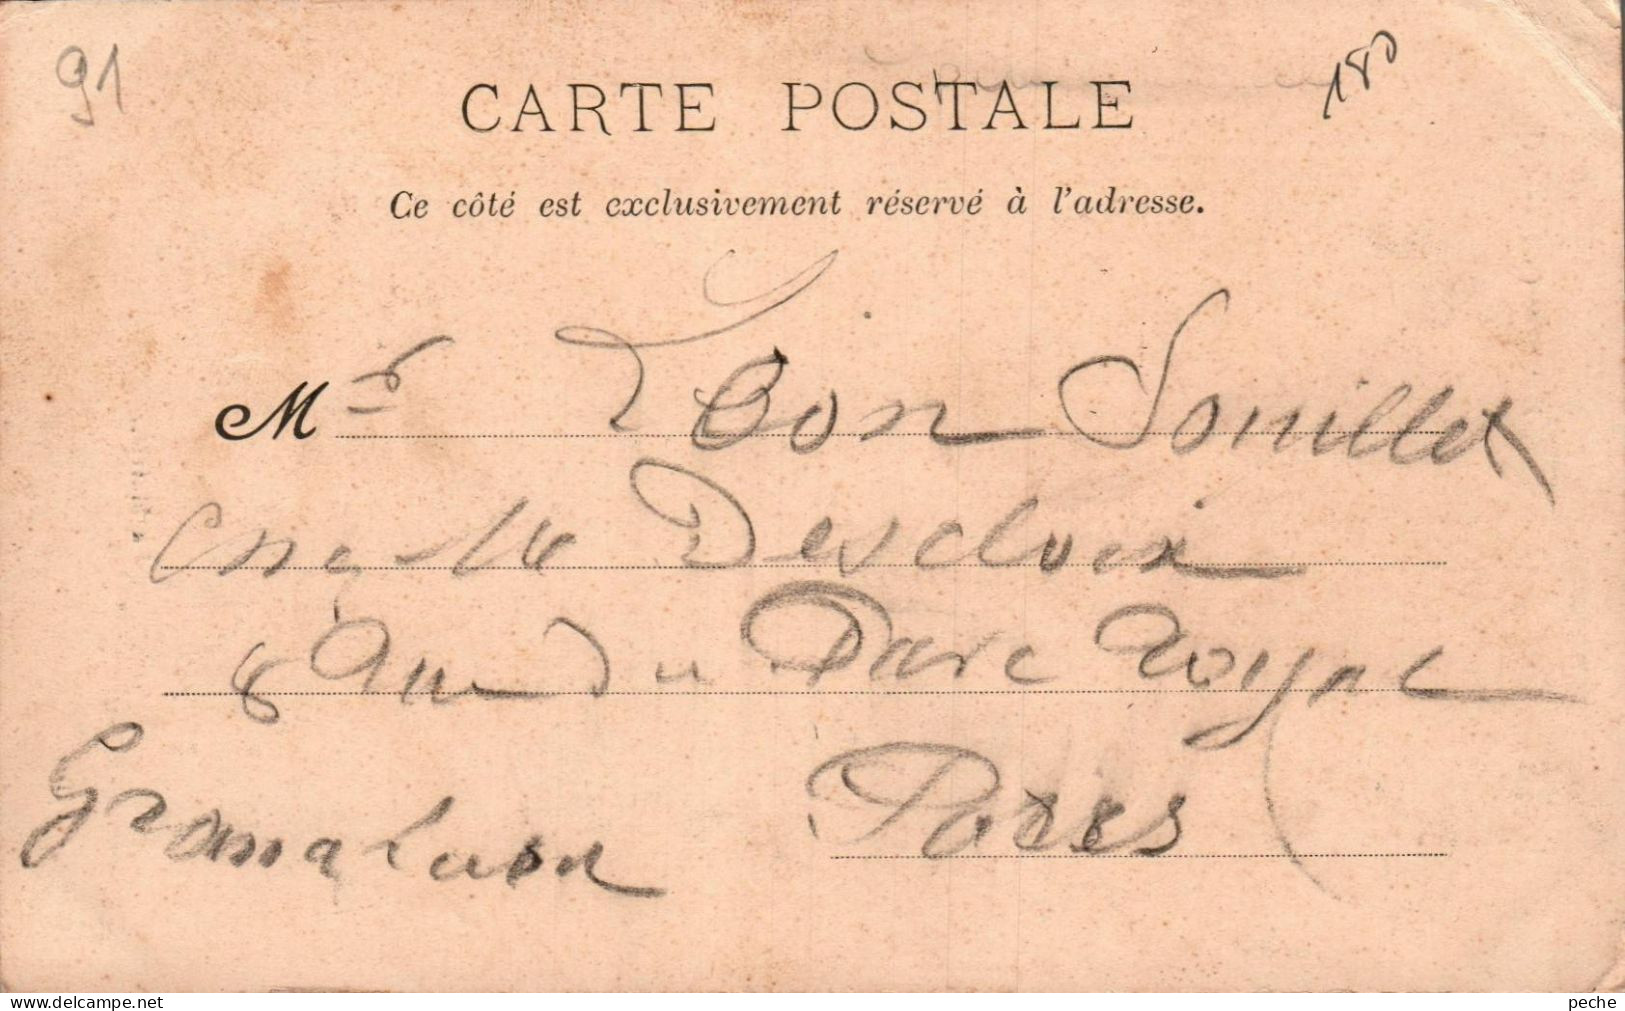 91
180
CARTE POSTALE
Ce côté est exclusivement réservé à à l'adresse.
Mr Léon Souillet
Descloix
8 Rue du Parc Royal
Paris
www.delcampe.net
peche